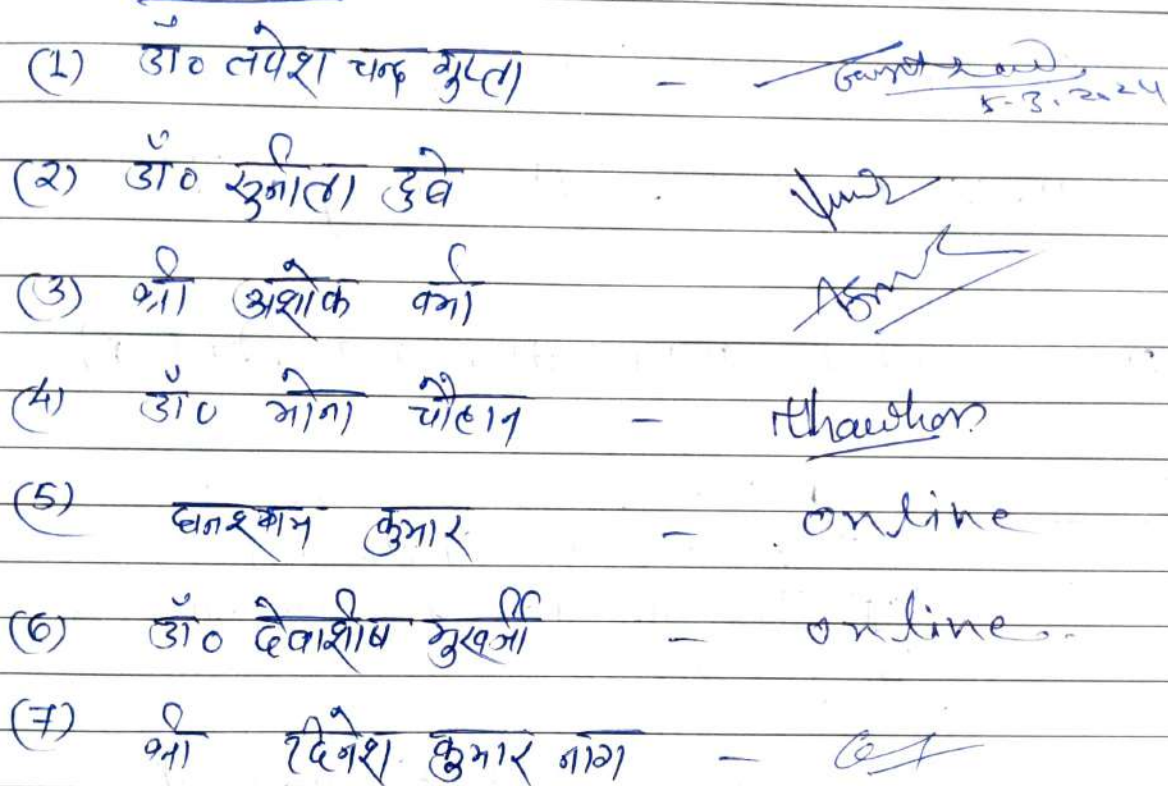 (1) डॉ० तपेश चन्द्र गुप्ता - 5-3-2024
(2) डॉ० सुनीता दुबे
(3) श्री अशोक वर्मा
(4) डॉ० मोना चौहान - Chauhan
(5) घनश्याम कुमार - online
(6) डॉ० देवाशीष मुखर्जी - online.
(7) श्री दिनेश कुमार नाग -